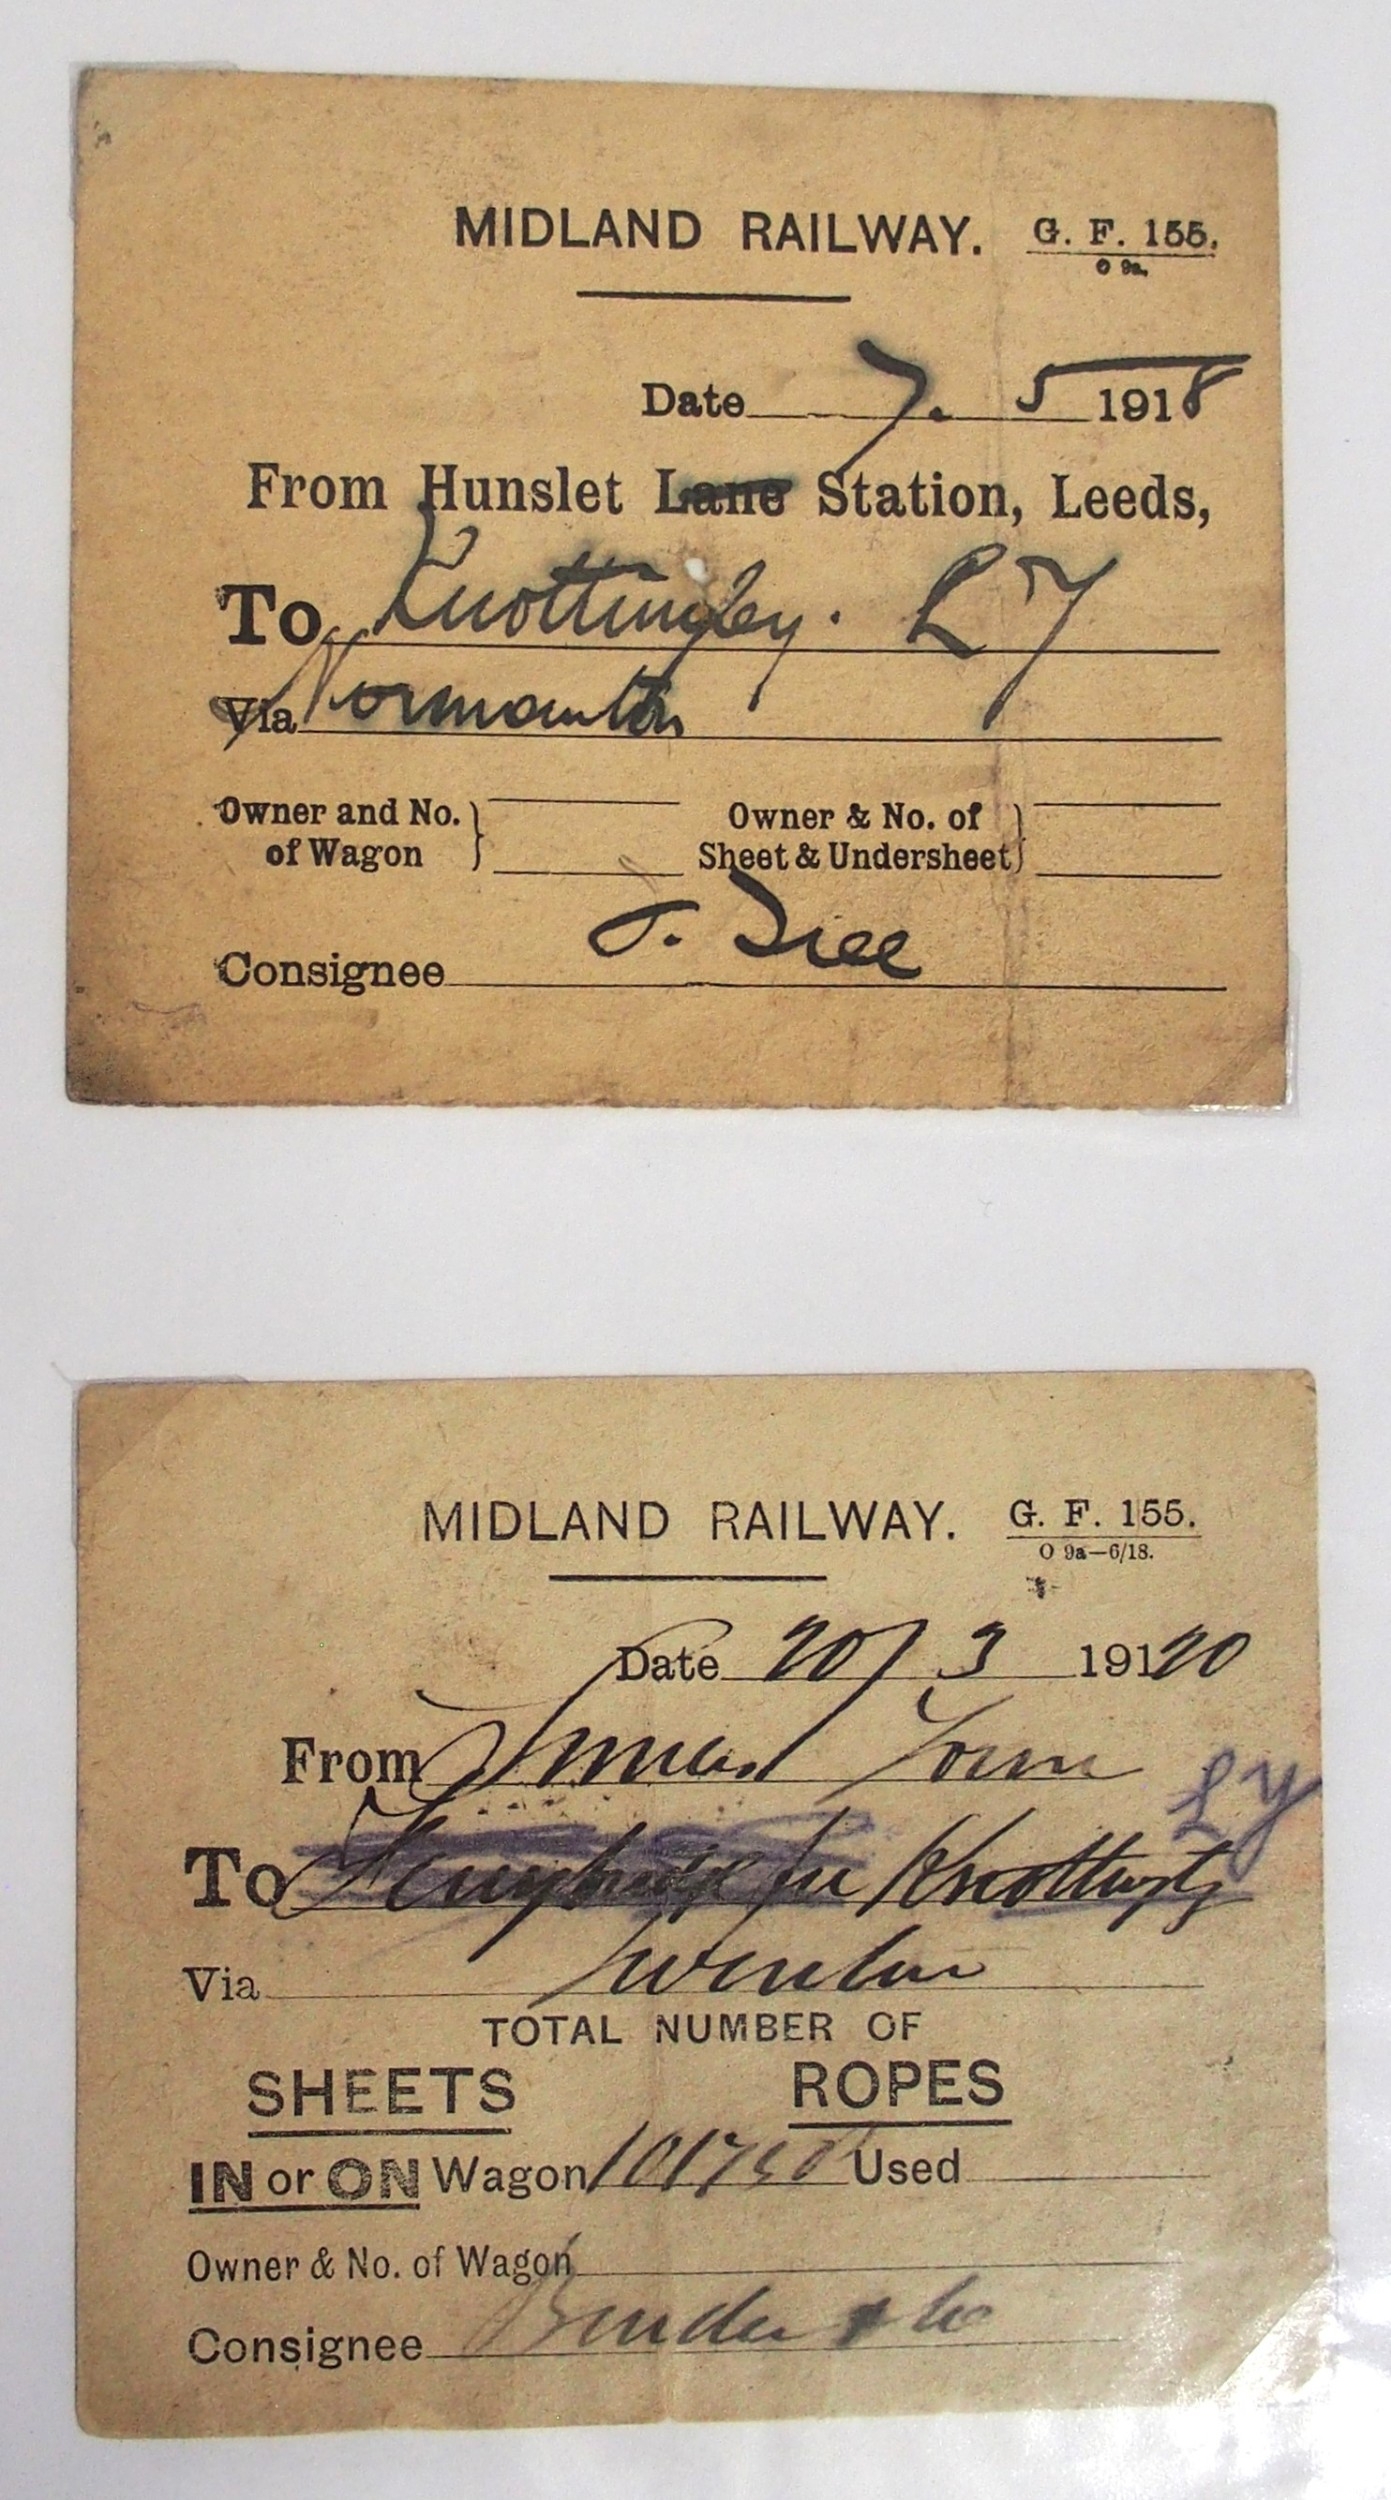 MIDLAND RAILWAY. G. F. 155.
O 9a.
Date 7. 5 1918
From Hunslet Lane Station, Leeds,
To Knottingley. L Y
Via Normanton
Owner and No. of Wagon
Owner & No. of Sheet & Undersheet
Consignee J.
MIDLAND RAILWAY. G. F. 155.
O 9a—6/18.
Date 20/3 19120
From Town
L Y
To Knottingly
Via
TOTAL NUMBER OF
SHEETS ROPES
IN or ON Wagon Used
Owner & No. of Wagon
Consignee & Co